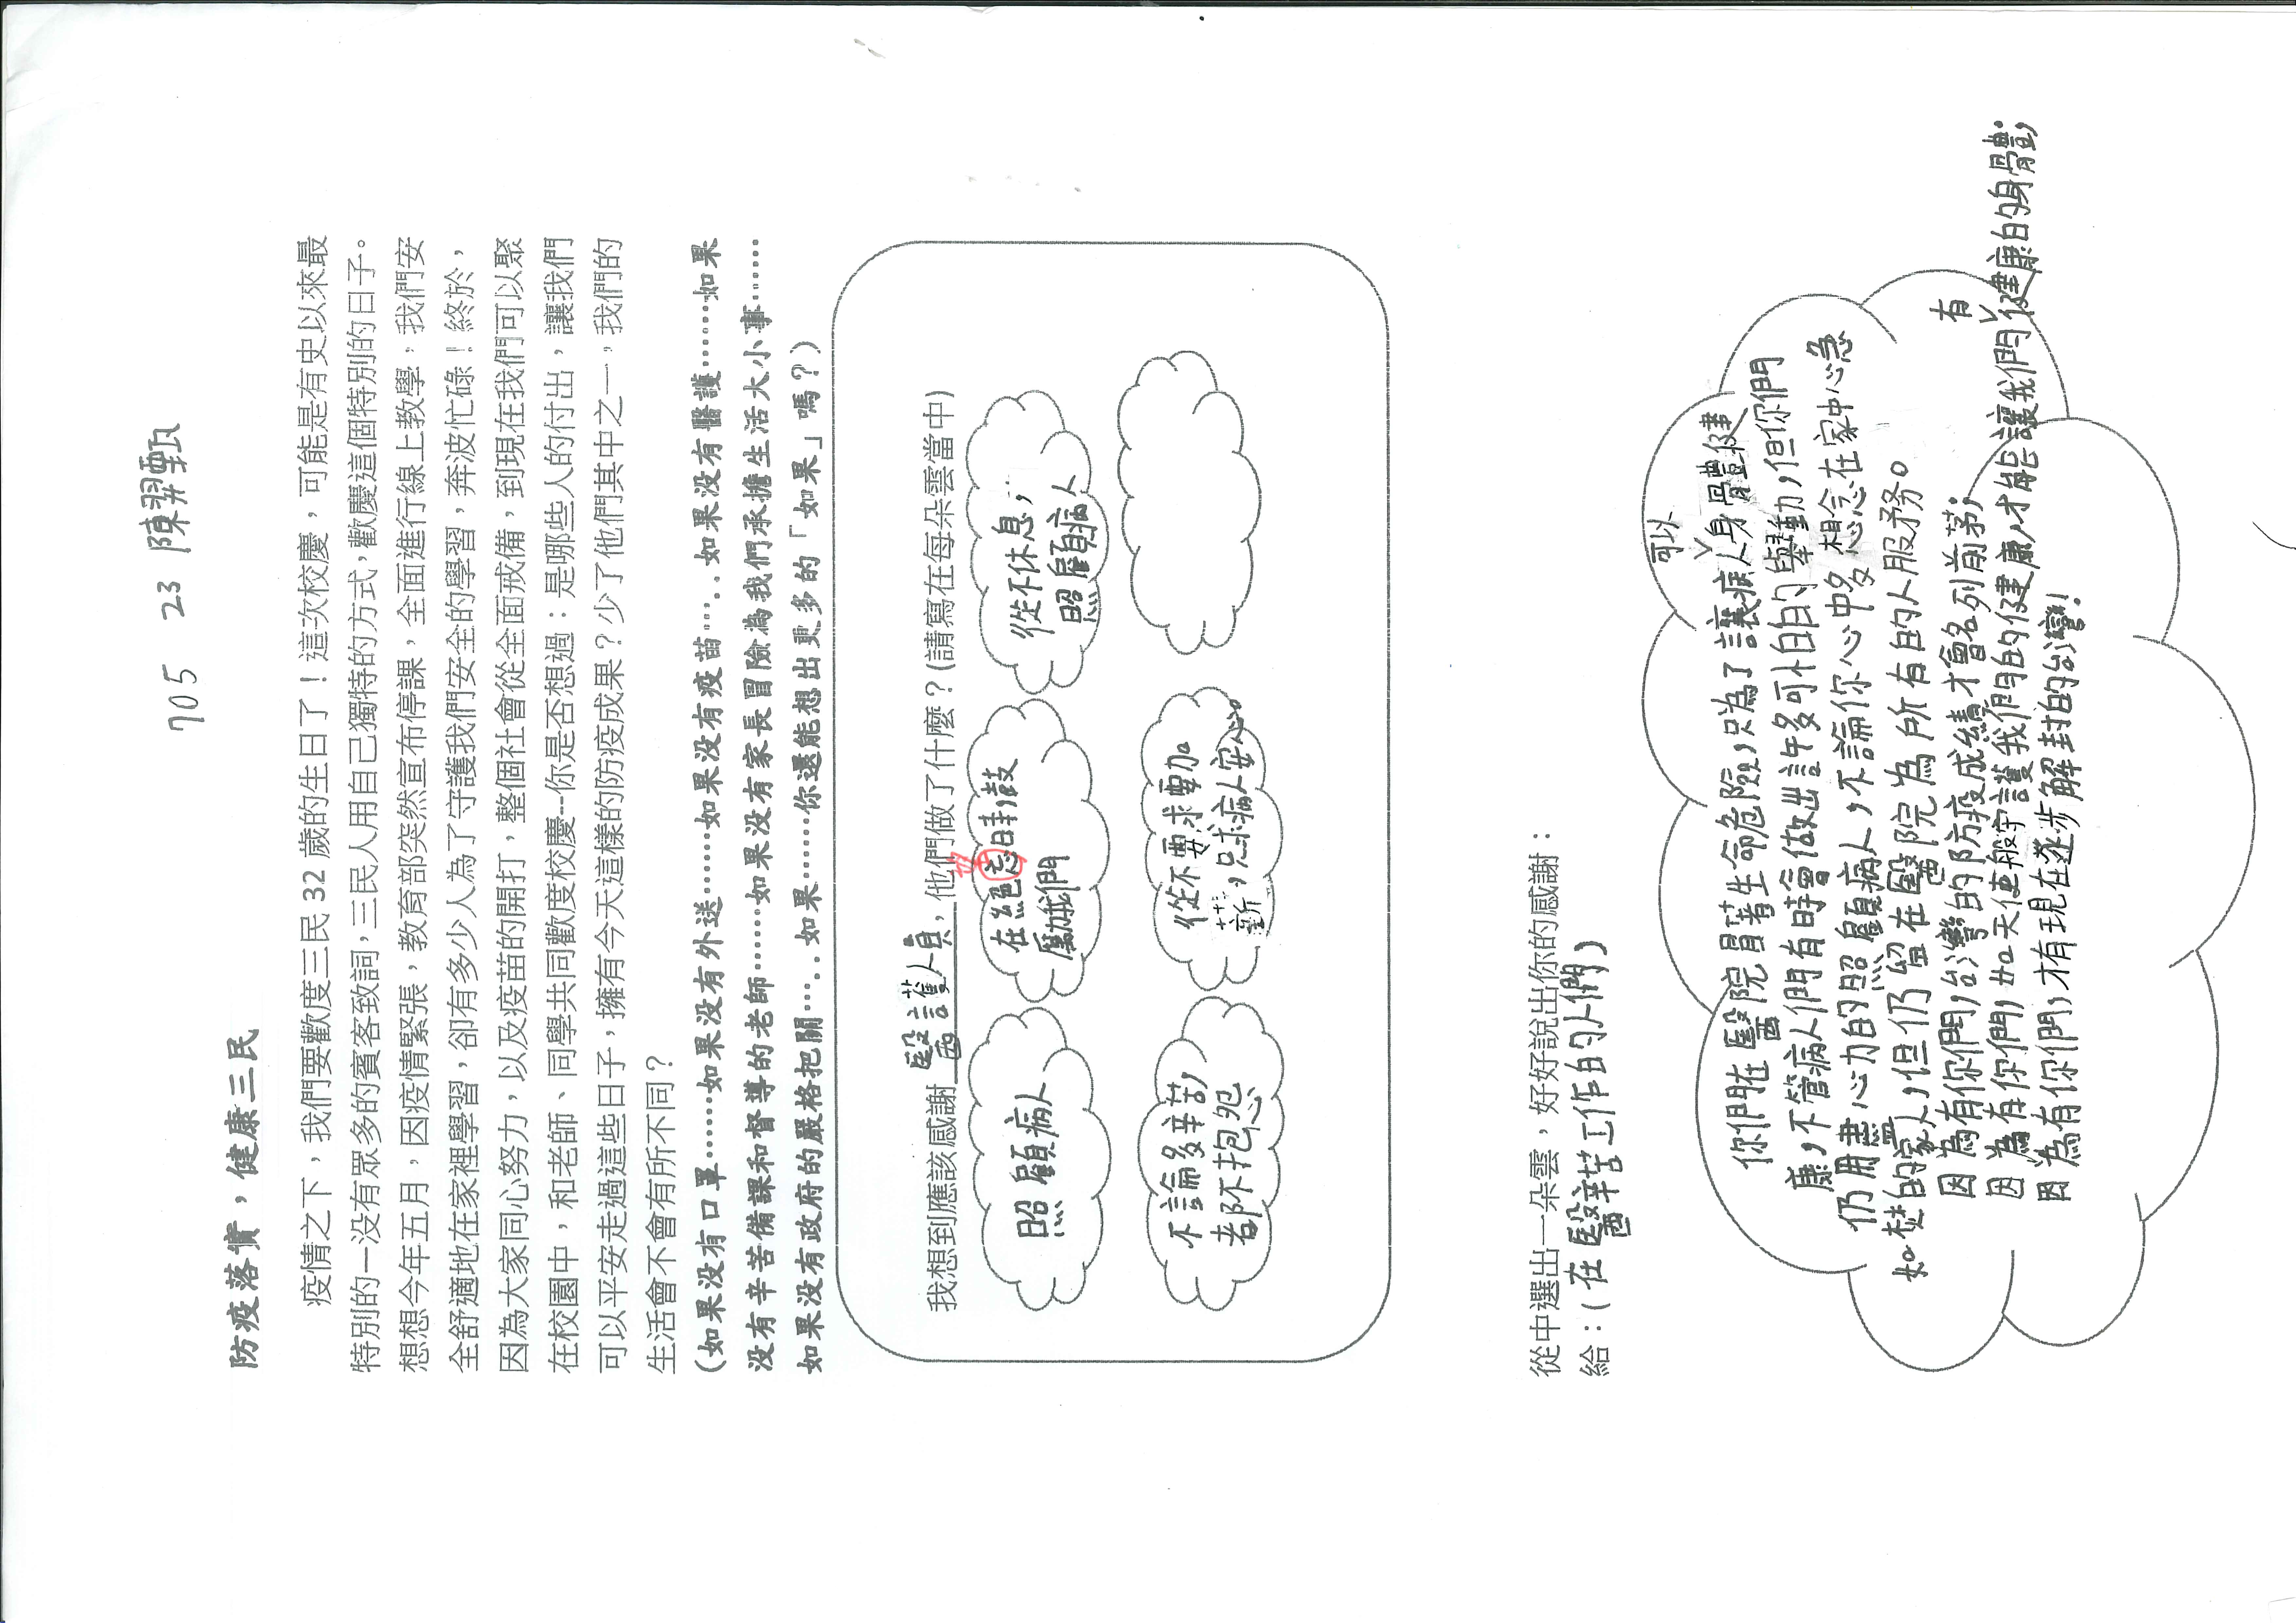 705 23 陳羿甄
防疫落實，健康三民
疫情之下，我們要歡度三民 32 歲的生日了！這次校慶，可能是有史以來最
特別的一沒有眾多的賓客致詞，三民人用自己獨特的方式，歡慶這個特別的日子。
想想今年五月，因疫情緊張，教育部突然宣布停課，全面進行線上教學，我們安
全舒適地在家裡學習，卻有多少人為了守護我們安全的學習，奔波忙碌！終於，
因為大家同心努力，以及疫苗的開打，整個社會從全面戒備，到現在我們可以聚
在校園中，和老師、同學共同歡度校慶--你是否想過：是哪些人的付出，讓我們
可以平安走過這些日子，擁有今天這樣的防疫成果？少了他們其中之一，我們的
生活會不會有所不同？
(如果沒有口罩……如果沒有外送……如果沒有疫苗…..如果沒有醫護……如果
沒有辛苦備課和督導的老師……如果沒有家長冒險為我們承擔生活大小事……
如果沒有政府的嚴格把關…..如果………你還能想出更多的「如果」嗎？)
我想到應該感謝 醫護人員，他們做了什麼？(請寫在每朵雲當中)
照顧病人
在絕忘時，鼓
勵我們
望
從不休息，
照顧病人
不論多辛苦，
都不抱怨
從不要求要加
薪，只求病人安心。
從中選出一朵雲，好好說出你的感謝：
給：(在醫辛苦工作的人們)
你們在醫院冒著生命危險，只為了讓病人可以身體健
康，不管病人們有時會做出許多可怕的舉動，但你們
仍用盡心力的照顧病人，不論你心中多想念在家中心急
如焚的家人，但仍留在醫院為所有的人服務。
因為有你們，台灣的防疫成績才會名列前茅；
因為有你們，如天使般守護我們的健康，才能讓我們有健康的身體；
因為有你們，才有現在逐步解封的台灣！